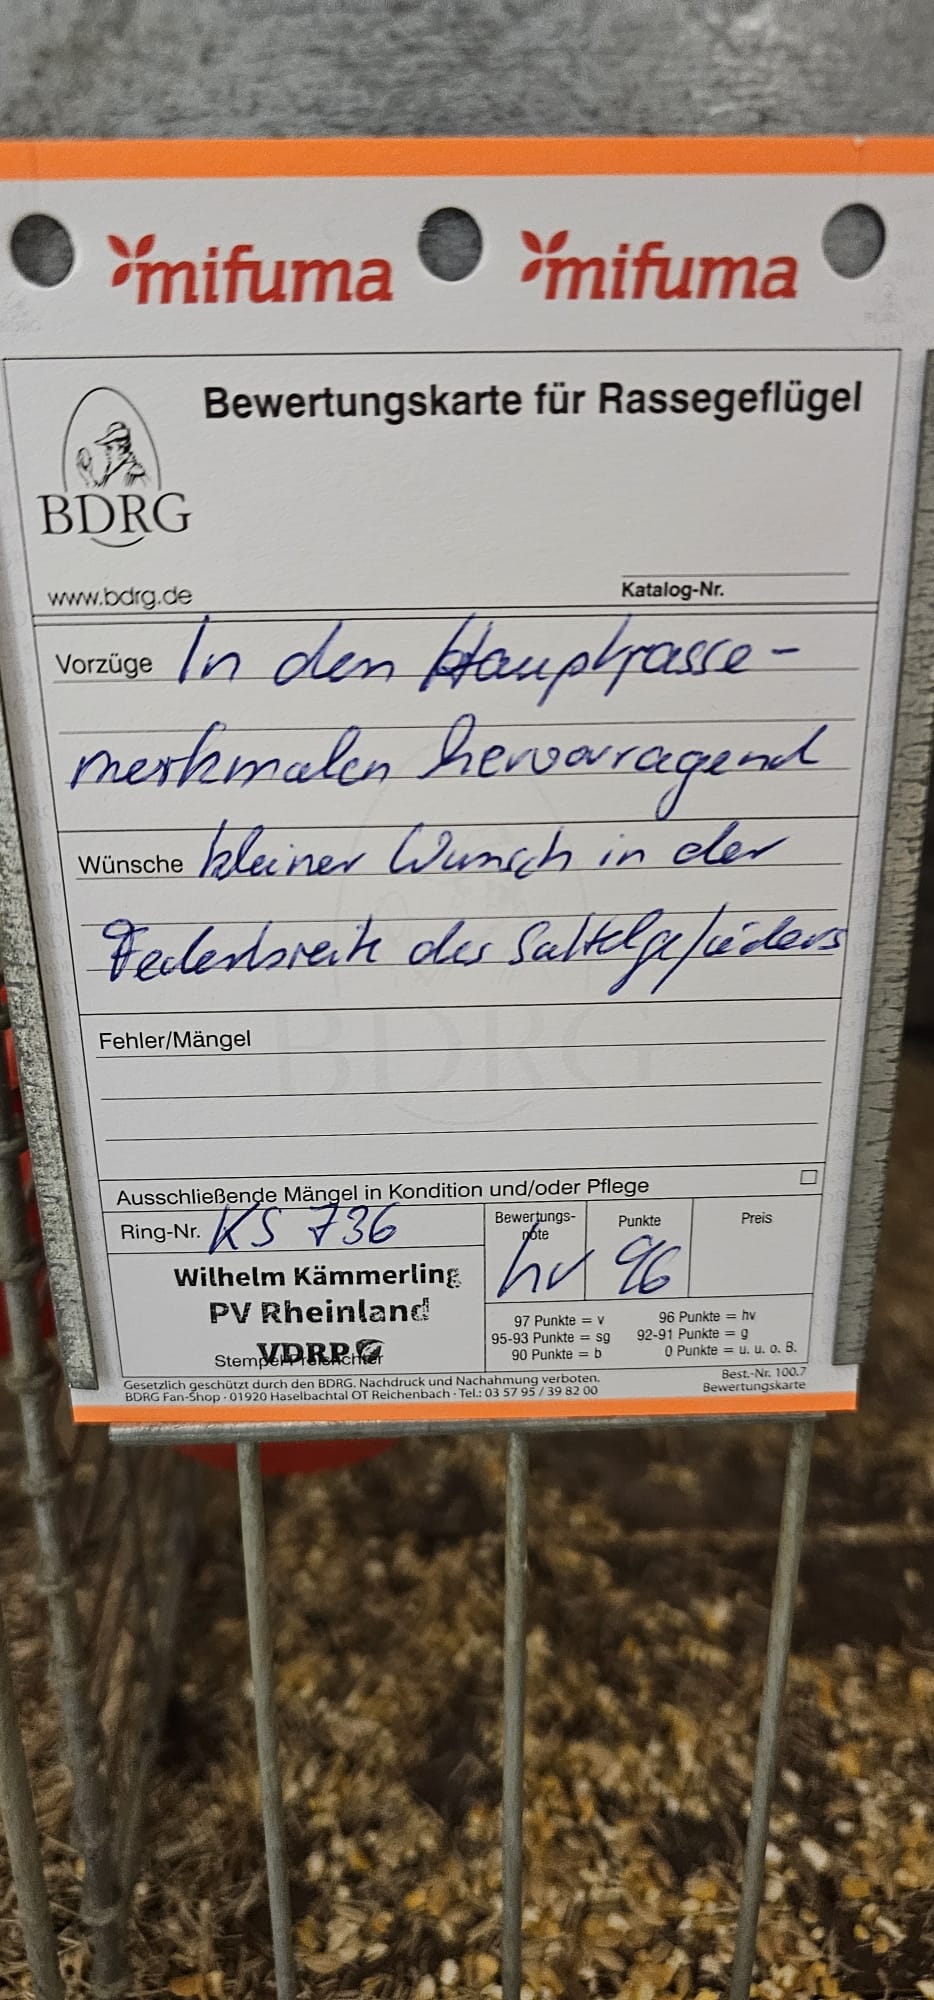 mifuma mifuma
Bewertungskarte für Rassegeflügel
BDRG
www.bdrg.de
Katalog-Nr.
Vorzüge In den Hauptrasse-
merkmalen hervorragend
Wünsche kleiner Wunsch in der
Federbreite des Sattelgefieders
Fehler/Mängel
Ausschließende Mängel in Kondition und/oder Pflege
Ring-Nr. KS 736
Bewertungs-
note
hv
Punkte
96
Preis
Wilhelm Kämmerling
PV Rheinland
VDRP
Stempel Preisrichter
97 Punkte = v 96 Punkte = hv
95-93 Punkte = sg 92-91 Punkte = g
90 Punkte = b 0 Punkte = u. u. o. B.
Gesetzlich geschützt durch den BDRG. Nachdruck und Nachahmung verboten.
BDRG Fan-Shop · 01920 Haselbachtal OT Reichenbach · Tel.: 03 57 95 / 39 82 00
Best.-Nr. 100.7
Bewertungskarte